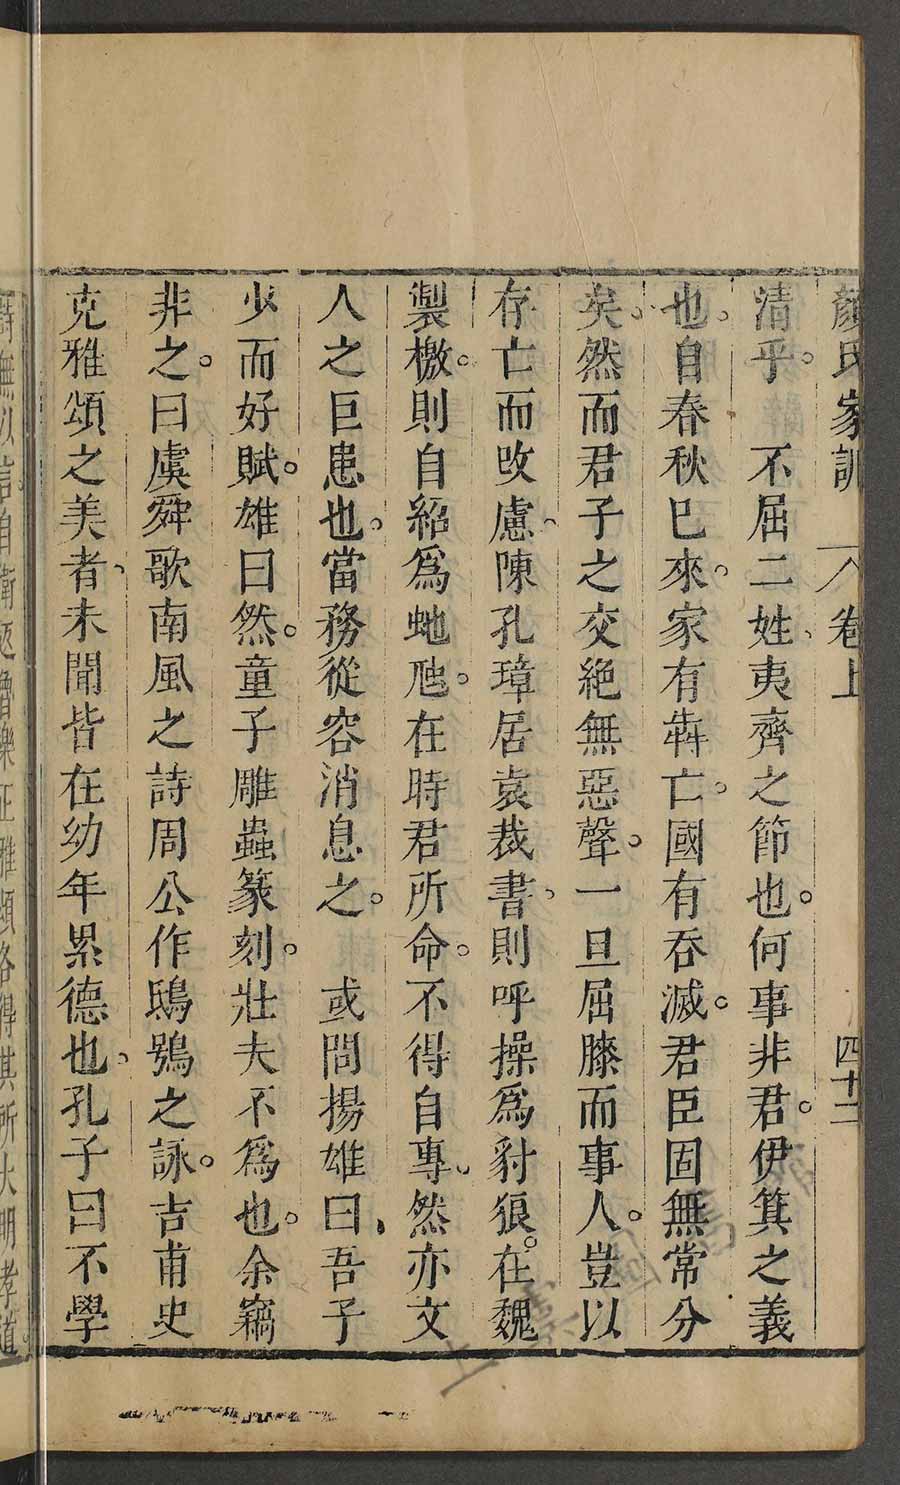 顏氏家訓 卷上 四十二
清乎。 不屈二姓、夷齊之節也。何事非君。伊箕之義
也。自春秋巳來。家有犇亡。國有吞滅。君臣固無常分
矣。然而君子之交絶無惡聲。一旦屈膝而事人。豈以
存亡而改慮、陳孔璋居袁裁書、則呼操爲豺狼。在魏
製檄。則自紹爲虵虺。在時君所命。不得自專、然亦文
人之巨患也。當務從容消息之。 或問揚雄曰、吾子
少而好賦。雄曰然。童子雕蟲篆刻。壯夫不爲也。余竊
非之。曰虞舜歌南風之詩周公作鴟鴞之詠。吉甫史
克雅頌之美者、未聞皆在幼年累德也、孔子曰不學
詩無以言自衛返魯樂正雅頌各得其所大明孝道